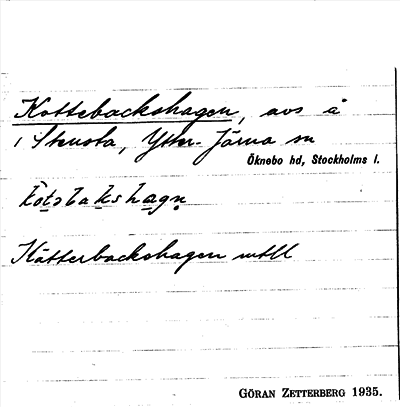 Kottebackshagen, avs å
i Stensta, Ytter-Järna sn
Öknebo hd, Stockholms l.
kòtəbakshagn̥
Kätterbackshagen
GÖRAN ZETTERBERG 1935.